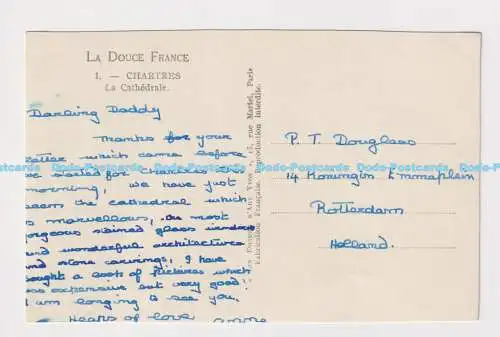 LA DOUCE FRANCE
1. — CHARTRES
La Cathédrale.
Darling Daddy
Thanks for your
letter which came before
we started for Chartres this
morning, we have just
seen the cathedral which
is marvellous, as most
gorgeous stained glass windows
and wonderful architectures
and stone carvings, I have
bought a book of pictures which
was expensive but very good.
I am longing to see you,
Heaps of love
rue Martel, Paris
Fabrication Française. Reproduction interdite.
P. T. Douglass
14 Koningin Emmaplein
Rotterdam
Holland.
Dodo-Postcards Dodo-Postcards Dodo-Postcards Dodo-Postcards